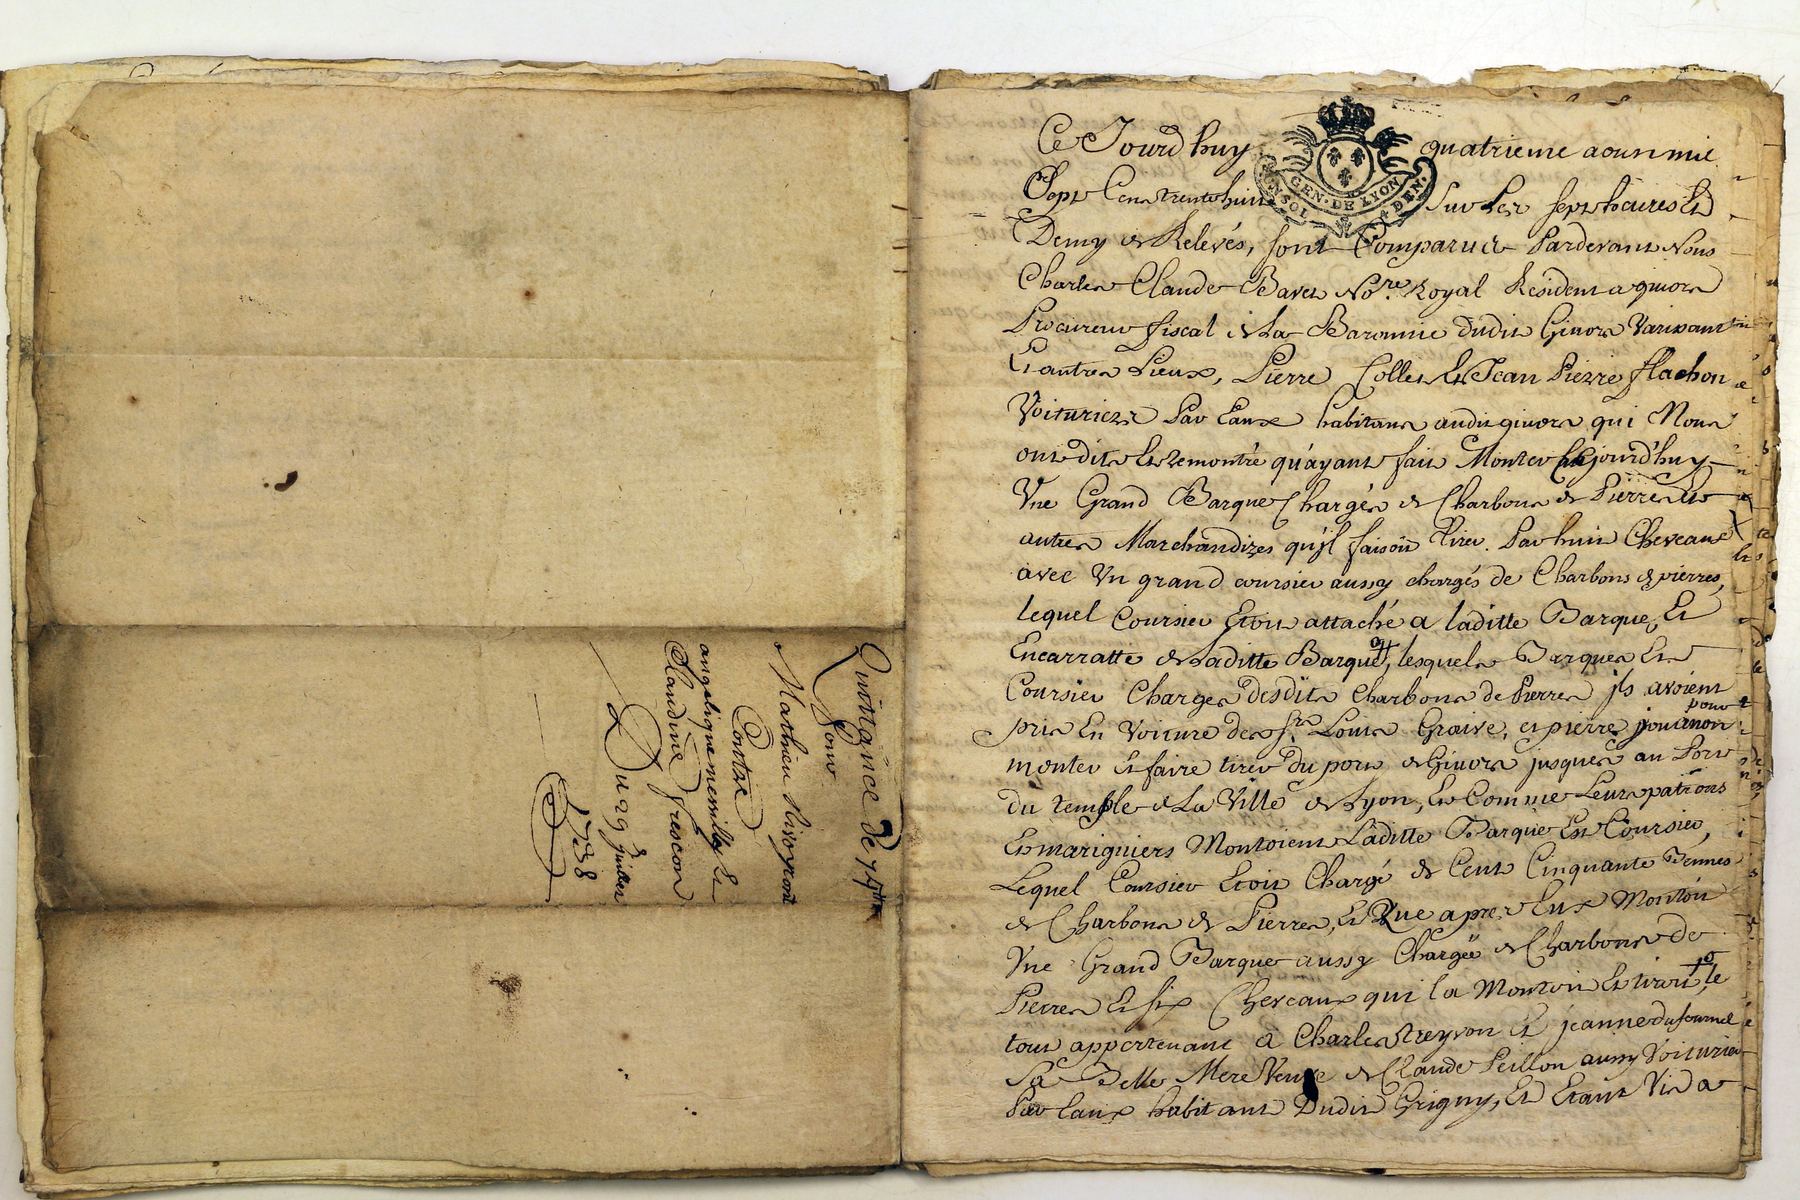 Quittance de 74 ₶
Pour
Mathieu Rivoyront
Contre
angelique mesmilly Et
Claudine frescon
Du 29 juillet
1738
Ce Jourd'huy quatrieme aoust mil
GEN. DE LYON
Sept Cens trente huit Sur Les sept heures Et
Demy de Relevés, sont Comparus Pardevant Nous
Charles Claude Bavet No.re Royal Resident a givors
Procureur fiscal de La Baronnie dudit Givors
Et autres Lieux, Pierre Collet Et Jean Pierre flachon
Voituriers Par Eaux habitans audit givors qui Nous
ont dit Et remontré qu'ayant fait Monter cejourd'huy
Vne Grand Barque Chargée de Charbons de Pierres Et
autres Marchandizes qu'jl faisoit Tirer Par huit Chevaux
avec Vn grand coursier aussy chargés de Charbons de pierres,
lequel Coursier Etoit attaché a laditte Barque, Et
Encarratte de Laditte Barque, lesquels Barques Et
Coursier Charges desdits Charbons de Pierres jls avoient
pris En Voiture des Srs Louis Graive, et pierre jouanon pour
monter Et faire tirer du port de Givors jusques au Port
du temple de La Ville de Lyon, Et Comme Leurs patrons
Et mariniers Montoient Laditte Barque Et Coursier,
Lequel Coursier Etoit Chargé de Cent Cinquante Bennes
de Charbons de Pierres, Et Que apres Eux Montoit
Vne Grand Barque aussy Chargée de Charbons de
Pierres Et six Chevaux qui la Montoit Et tiroit, le
tout appartenant a Charles treyvon Et jeanne dufournel
Sa Belle Mere Veuve de Claude Peillon aussy Voiturier
Par Eaux habitant Dudit Grigny, Et Etant Vis a